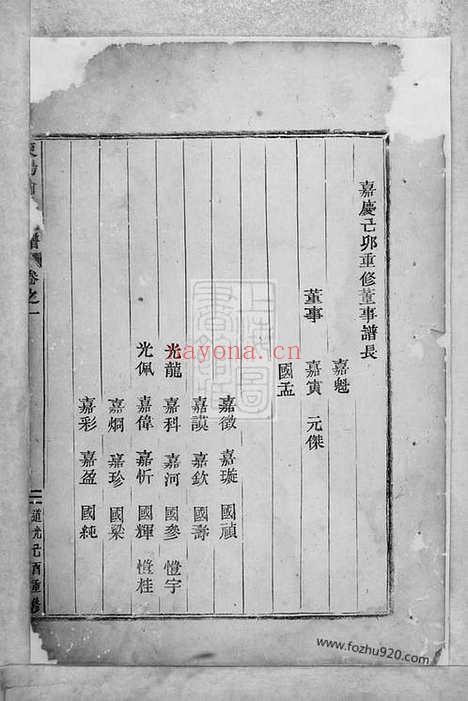 嘉慶己卯重修董事譜長
嘉魁
董事 嘉寅 元傑
國孟
嘉徵 嘉璇 國禎
嘉謨 嘉欽 國壽
光龍 嘉科 嘉河 國參 愷宇
光佩 嘉偉 嘉忻 國輝 愷桂
嘉炯 嘉珍 國梁
嘉彩 嘉盈 國純
譜 卷之一
道光己酉重修
kayona.cn
www.fozhu920.com